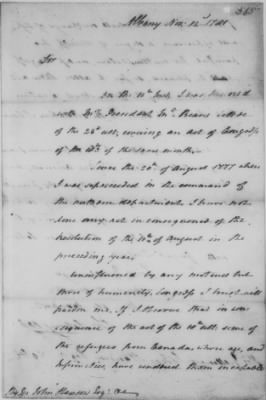 Albany Nov. 12th 1781
Sir
On the 10th Inst I was Honored
with President
of the 26th ult, covering an Act of Congress
of the of the same month.
Since the 20th of August 1777 when
I was superseded in the command of
the northern department I have not
done any act in consequence of the
resolution of the of August in the
preceding year.
uninfluenced by any motives but
those of humanity, Congress I trust will
pardon me If I observe that in con
sequence of the act of the ult some of
the refugees from Canada whose age, and
infirmities, have rendered them incapable
John Hanson Esqr &c